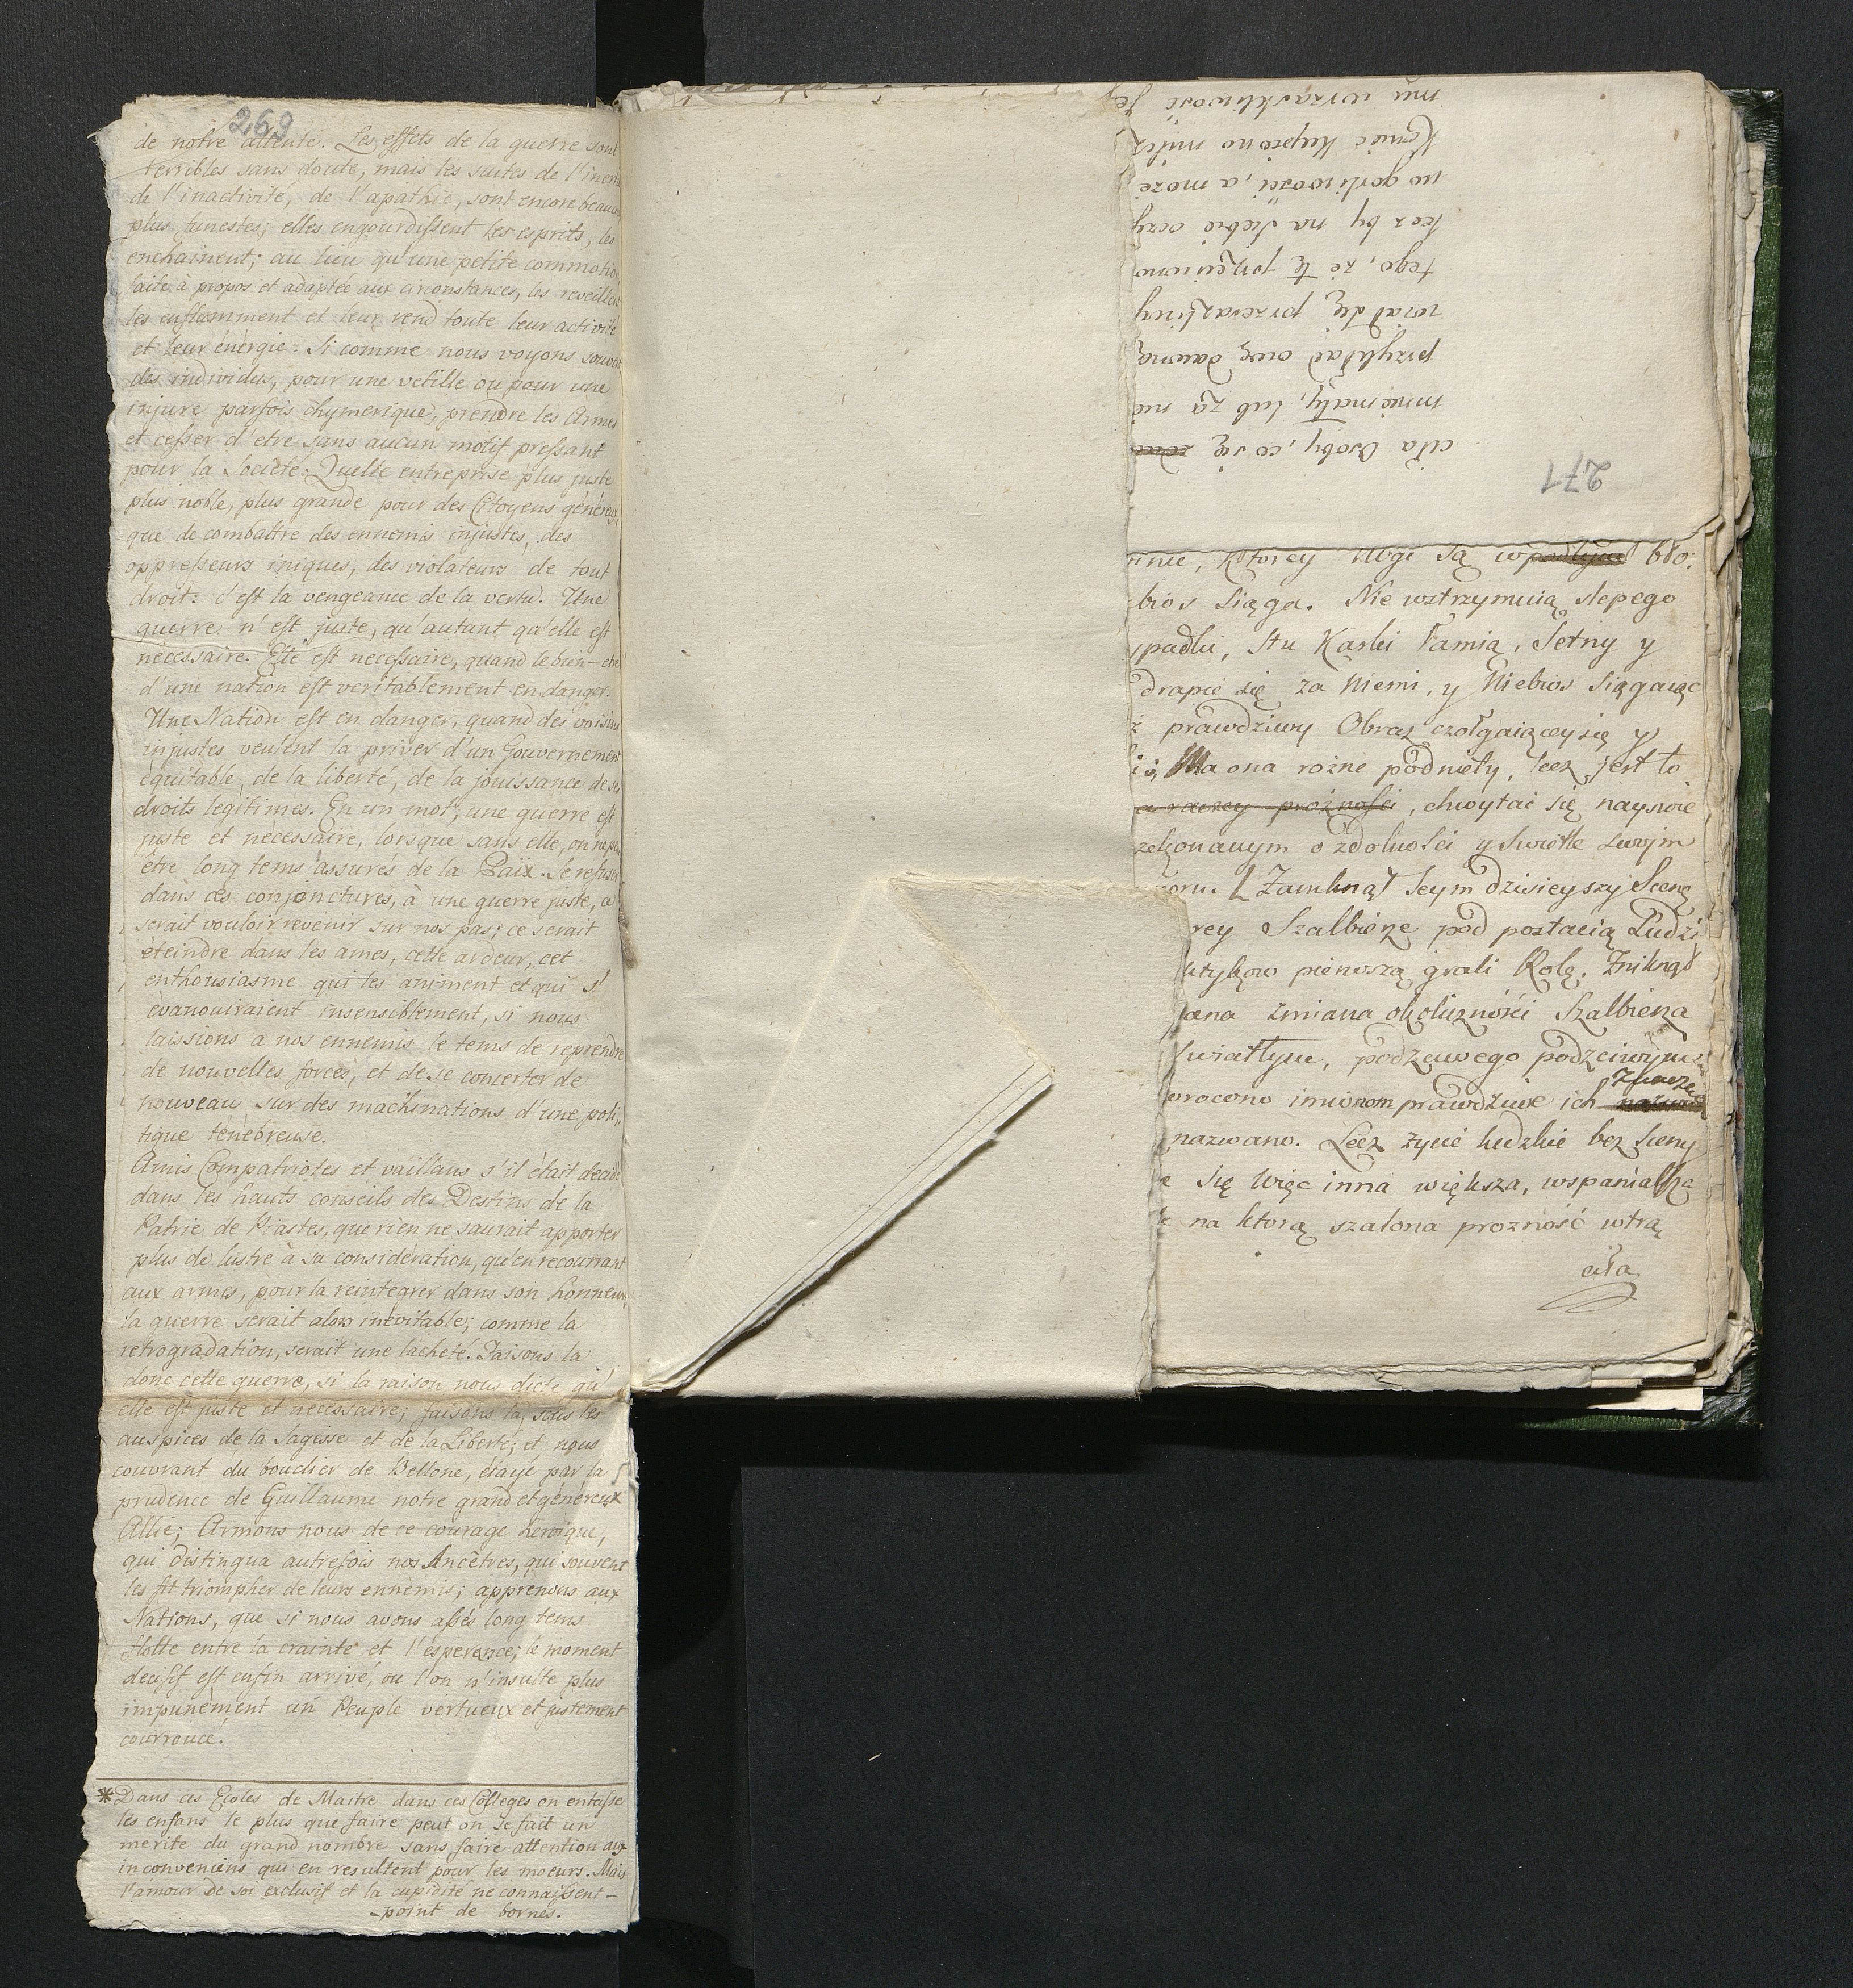 269
de notre attente. Les effets de la guerre sont
terribles sans doute, mais les suites de l'inertie
de l'inactivité, de l'apathie, sont encore beaucoup
plus funestes; elles engourdissent les esprits, les
enchainent; au lieu qu'une petite commotion
faite à propos et adaptée aux circonstances, les reveillent
les enflamment et leur rend toute leur activité
et leur énergie. Si comme nous voyons souvent
des individus, pour une vetille ou pour une
injure parfois chymerique, prendre les Armes
et cesser d'etre sans aucun motif pressant
pour la Societé. Quelle entreprise plus juste
plus noble, plus grande pour des Citoyens généreux,
que de combattre des ennemis injustes, des
oppresseurs iniques, des violateurs de tout
droit: c'est la vengeance de la vertu. Une
guerre n'est juste, qu'autant qu'elle est
nécessaire. Elle est necessaire, quand le bien-etre
d'une nation est veritablement en danger.
Une Nation est en danger, quand des voisins
injustes veulent la priver d'un Gouvernement
équitable, de la liberté, de la jouissance de ses
droits legitimes. En un mot, une guerre est
juste et nécessaire, lorsque sans elle, on ne peut
être long tems assurés de la Paix. Se refuser
dans ces conjonctures, à une guerre juste, ce
serait vouloir revenir sur nos pas; ce serait
éteindre dans les ames, cette ardeur, cet
enthousiasme qui les animent et qui s'
évanouiraient insensiblement, si nous
laissions a nos ennemis le tems de reprendre
de nouvelles forces, et de se concerter de
nouveau sur des machinations d'une poli,,
tique ténébreuse.
Amis Compatriotes et vaillans s'il était decidé
dans les hauts conseils des Destins de la
Patrie de Piastes, que rien ne saurait apporter
plus de lustre à sa considération, qu'en recourrant
aux armes, pour la reintegrer dans son honneur,
la guerre serait alors inévitable; comme la
retrogradation, serait une lacheté. Faisons la
donc cette guerre, si la raison nous dicte qu'
elle est juste et necessaire; faisons la, sous les
auspices de la Sagesse et de la Liberté; et nous
couvrant du bouclier de Bellone, étayé par la
prudence de Guillaume notre grand et généreux
Allié; Armons nous de ce courage héroique,
qui distingua autrefois nos Ancêtres, qui souvent
les fit triompher de leurs ennemis; apprenons aux
Nations, que si nous avons assés long tems
flotté entre la crainte et l'esperence; le moment
decisif est enfin arrivé, ou l'on n'insulte plus
impunément un Peuple vertueux et justement
courroucé.
* Dans ces Ecoles de Maitre dans ces Colleges on entasse
les enfans le plus que faire peut on se fait un
merite du grand nombre sans faire attention aux
inconveniens qui en resultent pour les moeurs. Mais
l'amour de soi exclusif et la cupidité ne connaissent-
-point de bornes.
271
ciła Osoby, co się
mniemały, lub za nie
przykład owę dawną
wiał się przeraźliwy
tego, że tę
lecz by na Siebie oczy
wo gorliwości, a może
Koniec kupiono milcz
mu wrzaskliwość Je
nnie, ktorey Nogi są w bło,,
bios Siąga. Nie wstrzymuią slepego
ypadki, Stu Karki łamią, Setny y
drapie się za Niemi, y Niebios Siągaiąc
ż prawdziwy Obraz czołgaiącey się y
Ma ona rożne podniety, lecz jest to
a raczey prożności, chwytać się nayswie
zekonanym o zdolności y Swietle Swojm
Zamknął Seym dzisieyszy Scenę
rey Szalbierze pod postacią Ludzi
lityków pierwszą grali Rolę. Zniknął
zmiana okoliczności Szalbierza
światłym, podzciwego podzciwym
wrocono imionom prawdziwe ich znacze
nazwano. Lecz życie ludzkie bez Sceny
Się Więc inna większa, wspanialsza
na ktorą szalona prozność wtrą
ciła